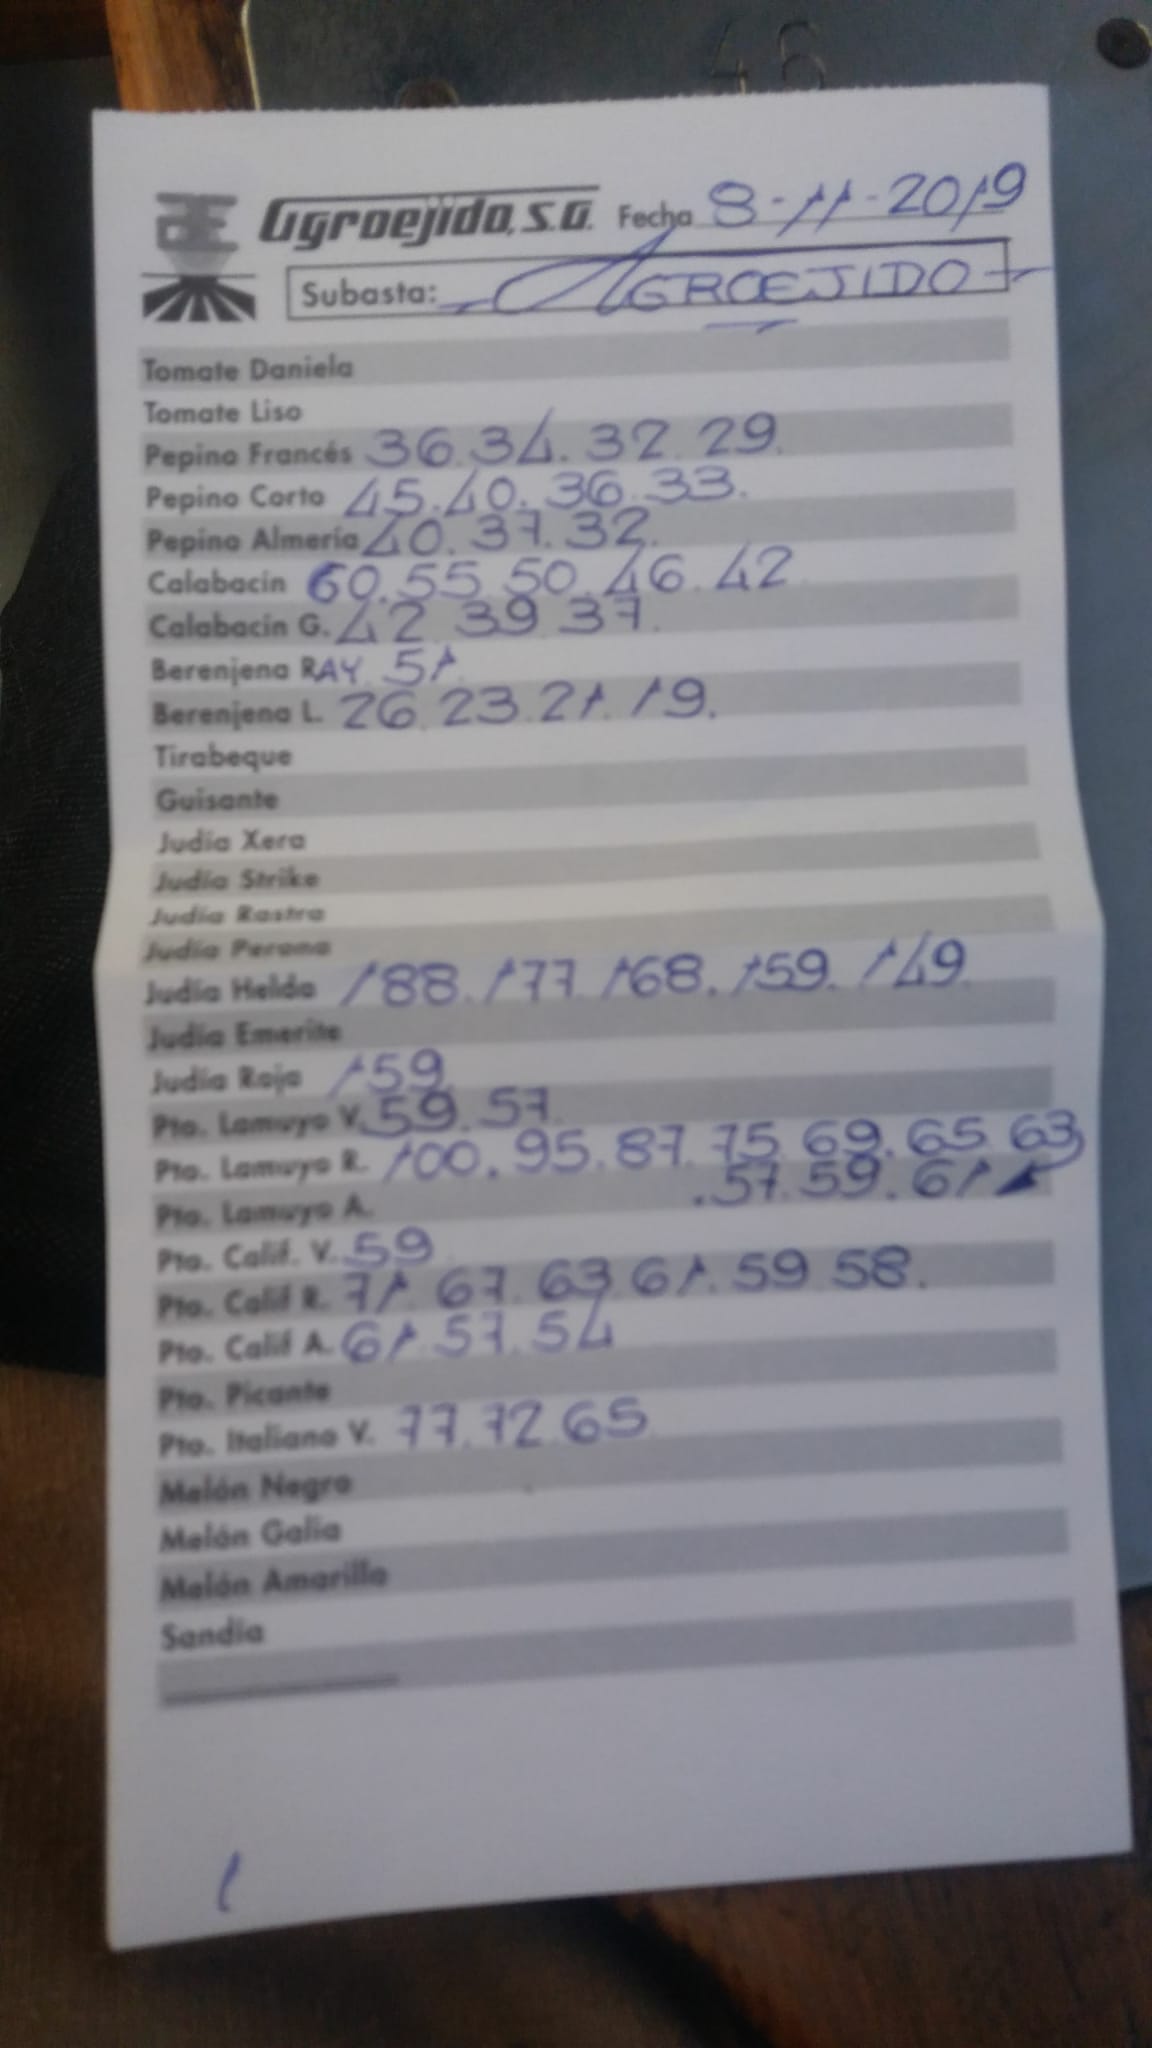 46
Agroejido, S.A. Fecha 8-11-2019
Subasta: AGROEJIDO
Tomate Daniela
Tomate Liso
Pepino Francés 36.34.32.29.
Pepino Corto 45.40.36.33.
Pepino Almería 40.37.32.
Calabacín 60.55.50.46.42
Calabacín G. 42 39 37.
Berenjena RAY 51.
Berenjena L. 26.23.21.19.
Tirabeque
Guisante
Judía Xera
Judía Strike
Judía Rastra
Judía Perona
Judía Helda 188.177.168.159.149.
Judía Emerite
Judía Roja 159.
Pto. Lamuyo V. 59.57.
Pto. Lamuyo R. 100.95.87.75.69.65.63
.57.59.61
Pto. Lamuyo A.
Pto. Calif. V. 59
Pto. Calif R. 71.67.63.61.59 58.
Pto. Calif A. 61.57.54
Pto. Picante
Pto. Italiano V. 77.72.65
Melón Negro
Melón Galia
Melón Amarillo
Sandía